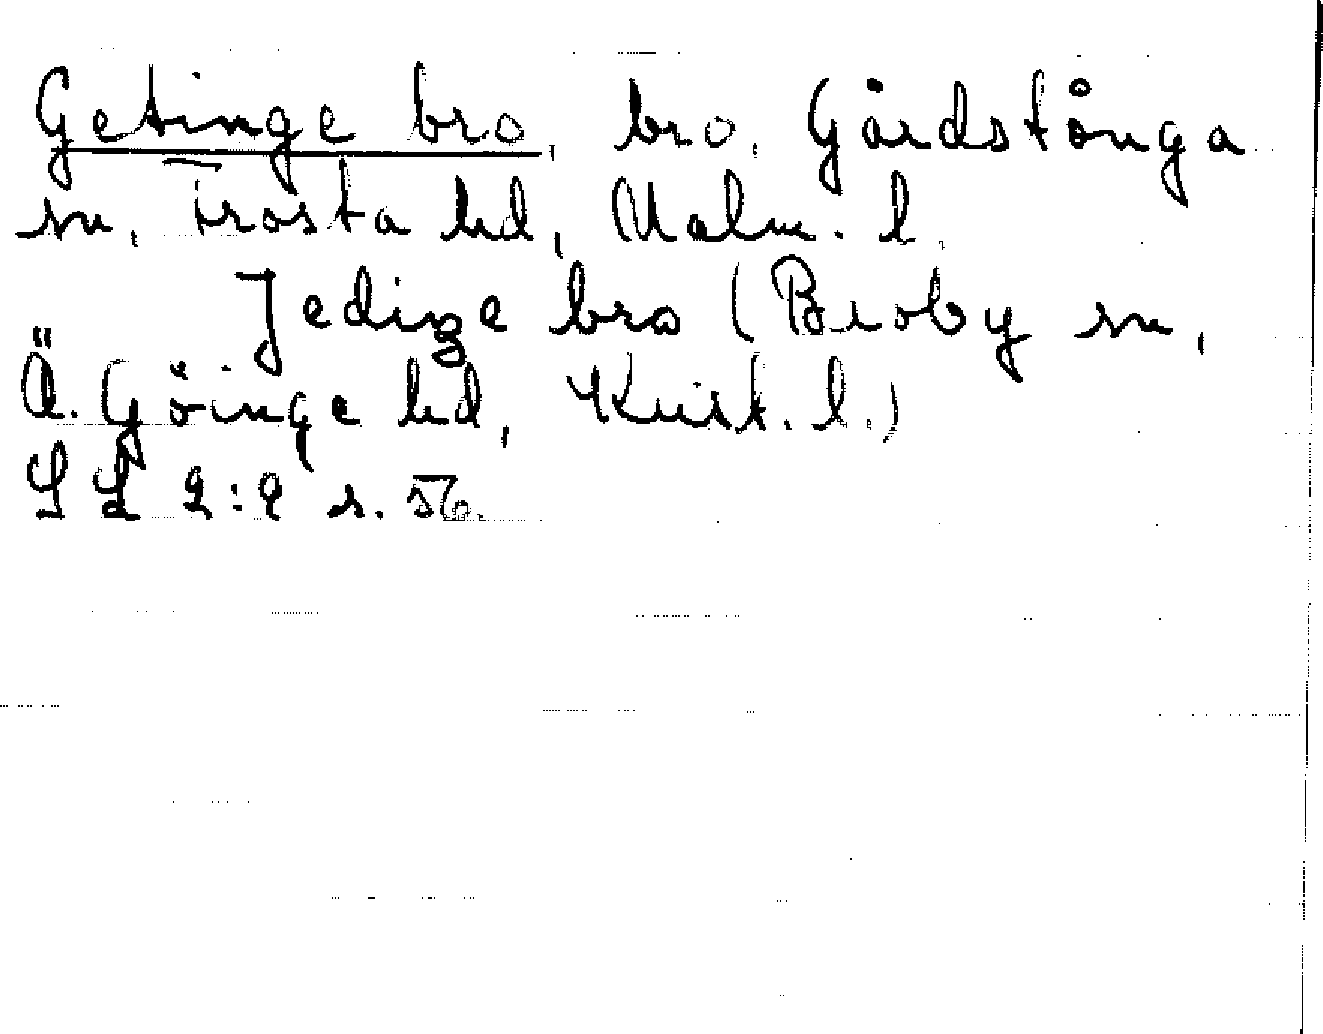 Getinge bro, bro, Gårdstånga
sn, Frosta hd, Malm. l.
Jedinge bro (Broby sn,
Ö. Göinge hd, Krist. l.)
SL 2:2 s. 56.